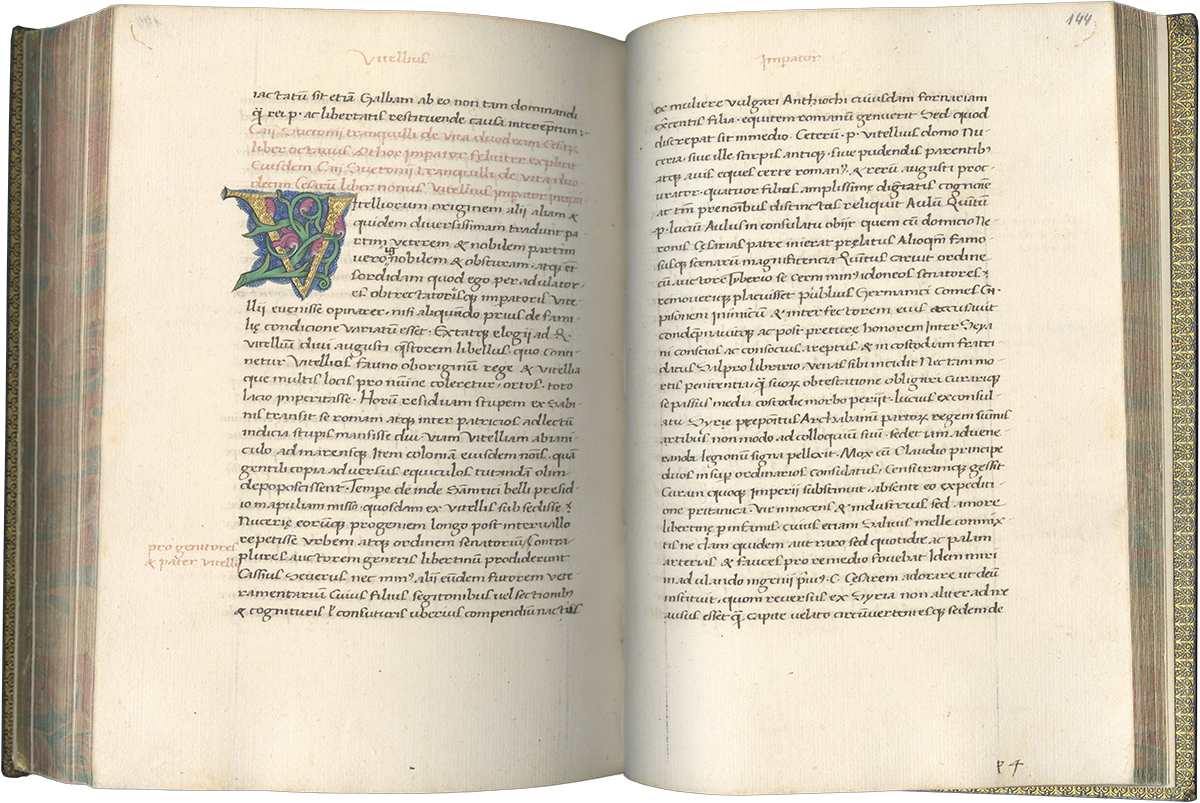 Vitellius
iactatū sit etiā Galbam ab eo non tam dominandi
q̄ rei p. ac libertatis restituende causa interēptum:
Caij Suetonij tranquilli de vita duodecim Cesarū
liber octavus Othor Imp̄ator feliciter explicit
Eiusdem Caij Suetonij tranquilli de vita duo
decim Cesarū liber nonus Vitellius imp̄ator incipit
Vitelliorum originem alij aliam &
quidem diversissimam tradunt pa
rtim veterem & nobilem partim
vero nobilem & obscuram. atqꝫ ēt
sordidam quod ego per adulator
es obtrectatorisqꝫ imp̄atoris Vite
llij evenisse opinarer. nisi aliquādo prius de fami
lię condicione variatū esset. Extatqꝫ elogij ad Q.
vitelliū divi augusti q̄storem libellus, quo Conti
netur Vitellios fauno oboriginū rege & vitellia
que multis locis pro nūine coleretur. ortos. toto
lacio imperitasse. Horū residuam stupem ex Sabi
nis transisse romam atqꝫ inter patricios adlectū
indicia stupis mansisse diu viam Vitelliam abiani
culo ad mare usqꝫ Item coloniā eiusdem nōis. quā
gentili copia adversus equiculos tutandā olim
depoposcissent. Tempe deinde Sāmtici belli presid
io in apuliam misso. quosdam ex Vitellis subsedisse
Nucerię eorūqꝫ progeniem longo post intervallo
repetisse Vrbem atqꝫ ordinem senatoriū/ Contra
plures auctorem generis libertinū prodiderunt
Cassius Severus nec min⁹ alij eūdem sutorem vete
ramentariū Cuius filius segitonibus vel sectionib⁹
& cognituris l' consuturis uberius compendiū nactus
pro genitores
& pater Vitelli
144
Imp̄ator
ex muliere vulgari Anthiochi cuiusdam fornariam
ex̄centis filia. equitem romanū genuerit Sed quod
discrepat sit in medio. Ceterū. p. vitellius domo Nu
ceria, sive ille stirpis antiqꝫ. sive pudendis parentib⁹
atqꝫ avis eques certe roman⁹. & rerū augusti proc
urator. quatuor filios amplissime dig̅tatis cognōie
ac tm̄ prenōibus distinctas reliquit Aulū. Quītū
.p. luciū Aulus in consulatu obijt quem cū domicio Ne
ronis Cesaris patre inierat prelatus Alioq̄m famo
susqꝫ scenarum magnificencia Quītus caruit ordine
cū auctore Tyberio secerni min⁹ idoneos senatores
removeriqꝫ placuisset publius Germanici Comes Cn.
pisonem inimicū & interfectorem eius accusavit
condēpnavitqꝫ ac post preture honorem Inter Seya
ni conscios ac consocius areptus & in costodiam fratri
datus Salpro librario. venas sibi incidit Nec tim mo
rtis penitentia, q̄ suoꝝ obtestatione obligari curariqꝫ
se passus media costodie morbo perijt. lucius ex consul
atu Syrie prepositus Archabanū partoꝝ regem sūmis
artibus non modo ad colloquiū suū. sed etiam advene
randa legionū signa pellexit. Mox cū Claudio principe
duos insup̄ ordinarios consulatus, Censuramqꝫ gessit
Curam quoqꝫ Imperij substinuit. absente eo expediti
one pritanica. Vir innocens & industrius sed amore
libertinę p̄ infimis. cuius etiam salivis melle conmix
tis ne clam quidem aut raro sed quotidie. ac palam
arterias & fauces pro remedio fovebat Idem miri
in adulando ingenij primus. C. Cesarem adorare ut deū
instituit. quom reversus ex Syria non aliter ad ire
ausus esset q̄ capite velato circūvertensqꝫ se dem de
p 4